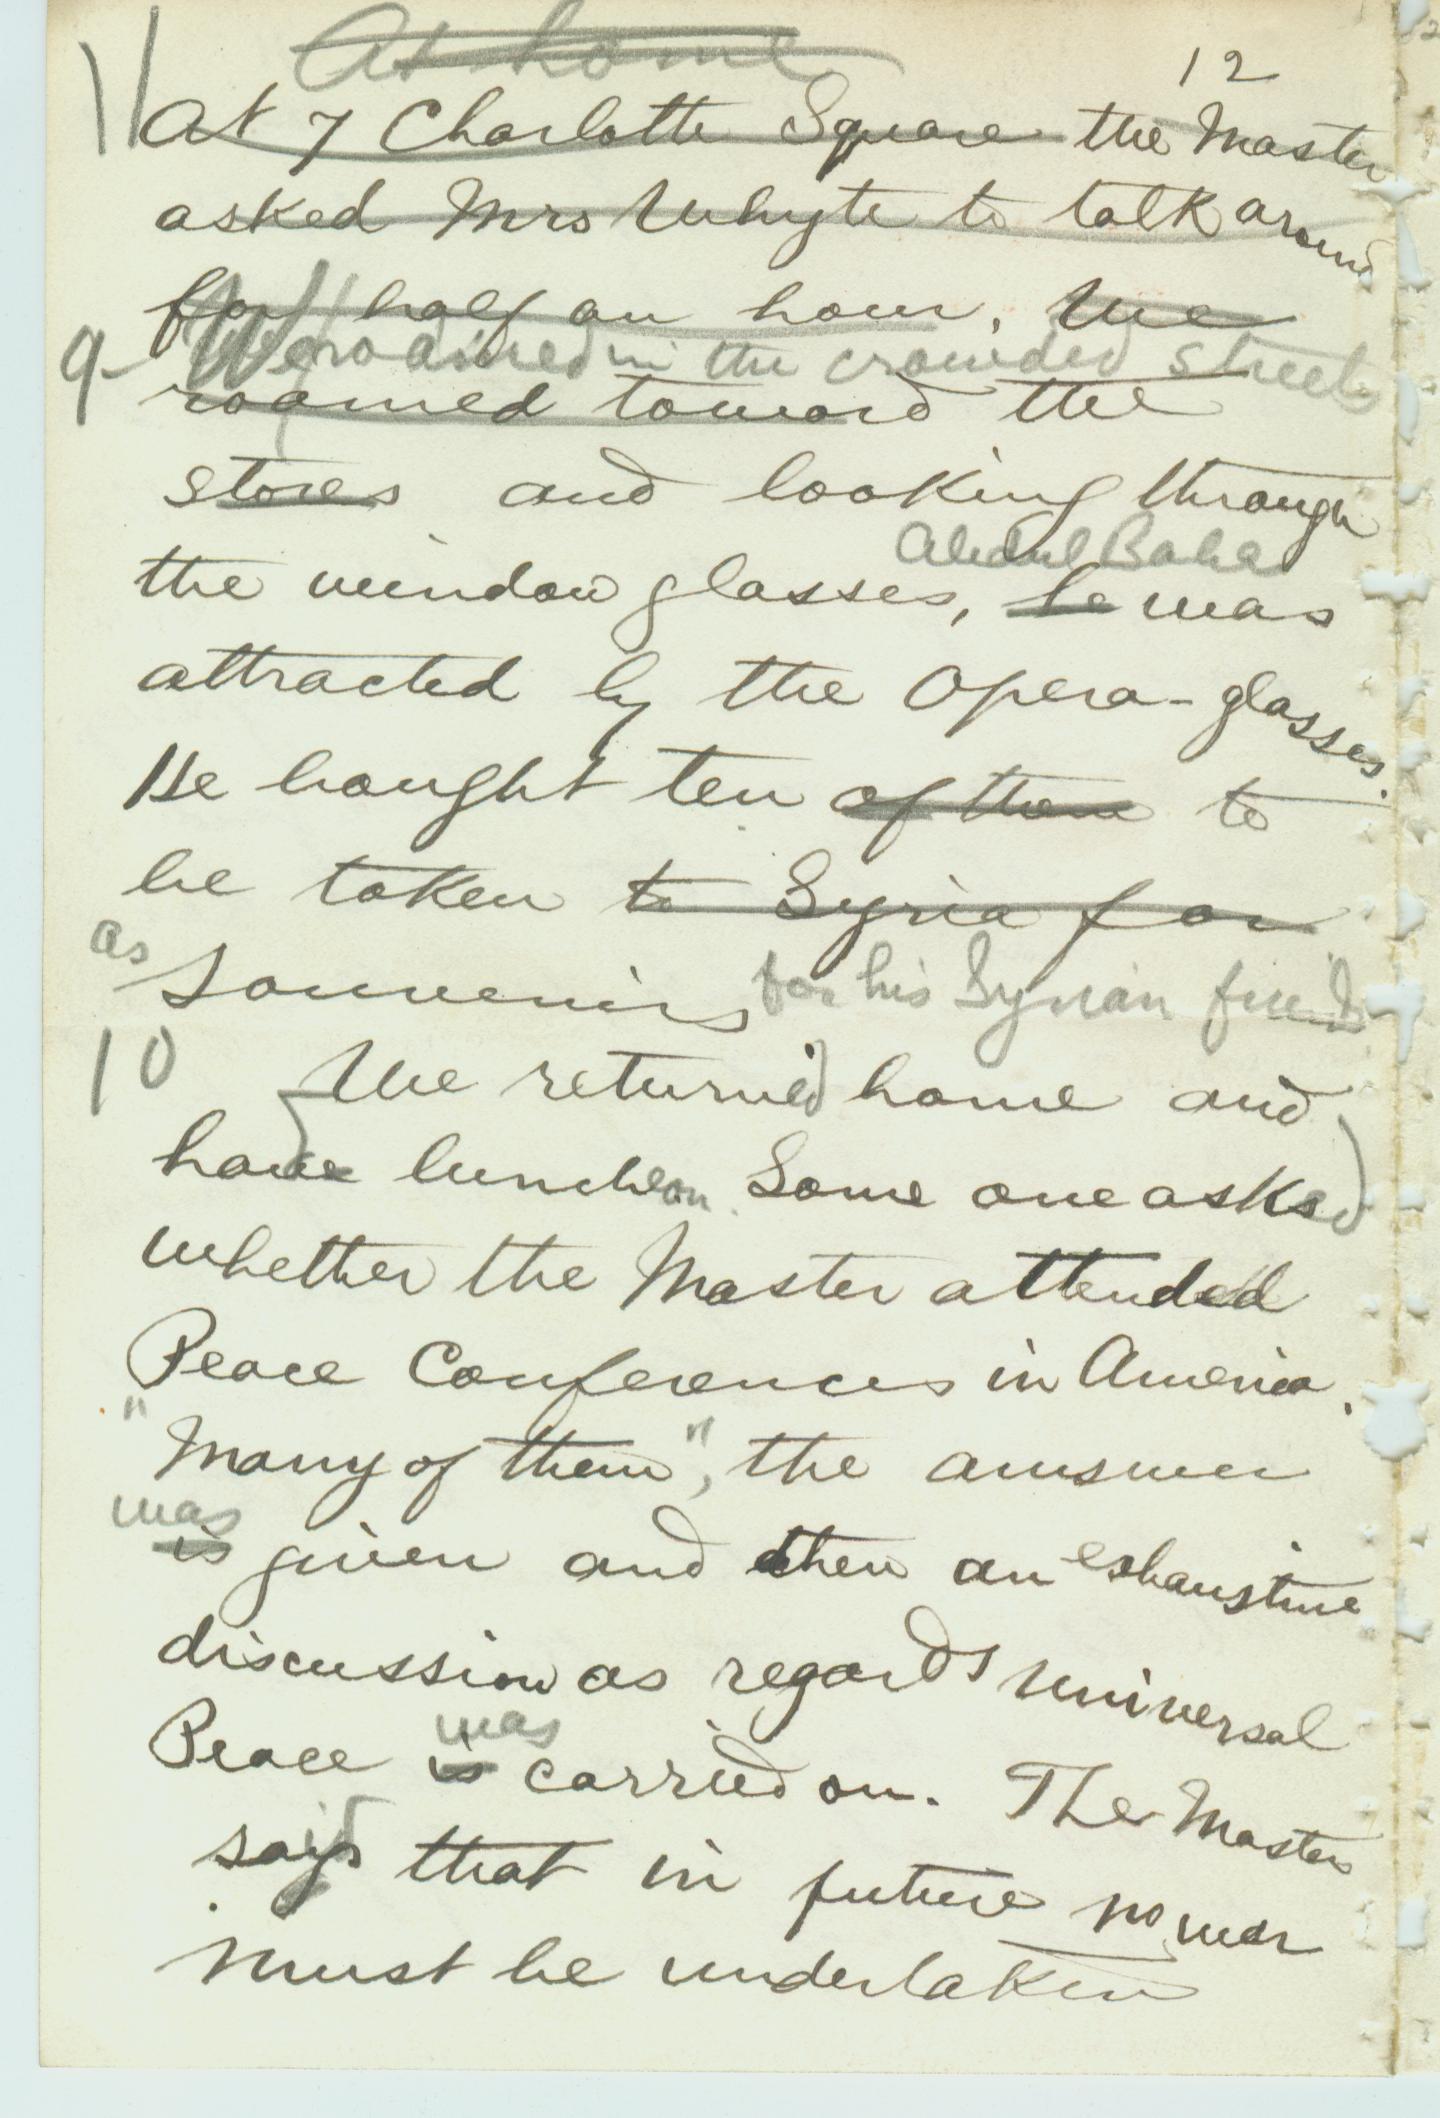 At home
12
11 At 7 Charlotte Square the Master
asked Mrs Whyte to talk around
for half an hour. We
9- We roamed in the crowded streets
roamed toward the
stores and looking through
Abdul Baha
the window glasses, he was
attracted by the Opera-glasses.
He bought ten of them to
be taken to Syria for
as souvenirs for his Syrian friends
10 We returned home and
have luncheon. Some one asked
whether the Master attended
Peace Conferences in America.
"Many of them", the answer
was
is given and then an exhaustive
discussion as regards Universal
was
Peace is carried on. The Master
said that in future no war
must be undertaken